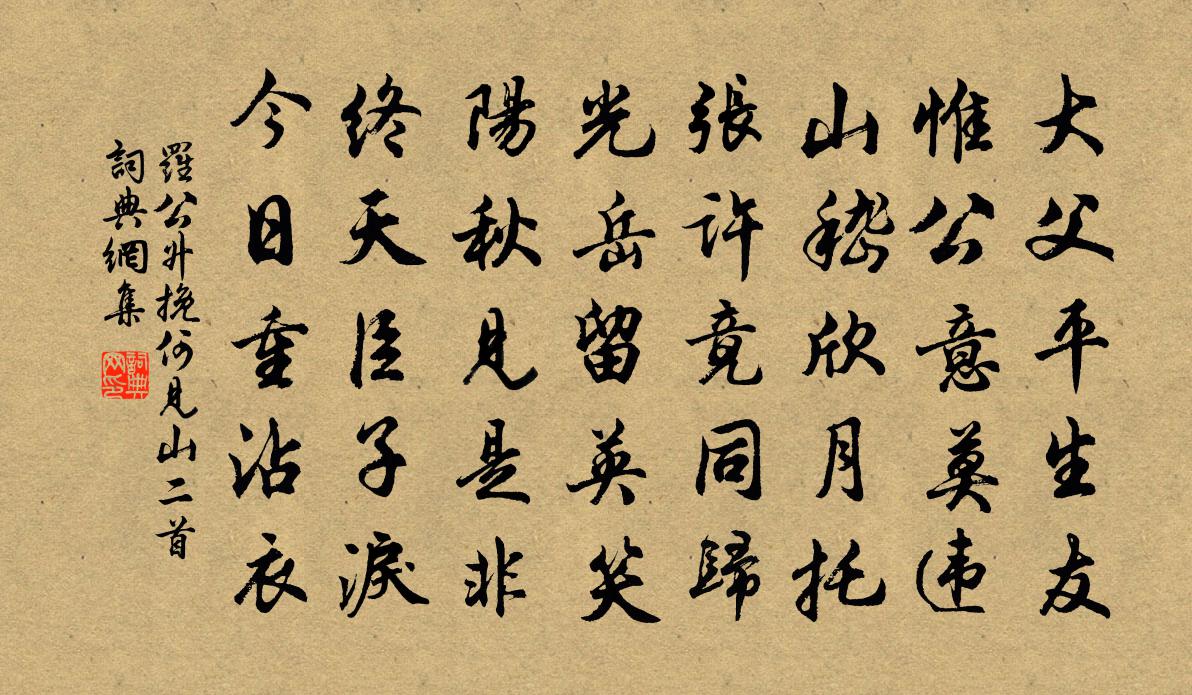 大父平生友
惟公意莫違
山嵇欣月托
張許竟同歸
光岳留英笑
陽秋見是非
終天臣子淚
今日重沾衣
羅公升挽何見山二首
詞典網集
詞典网印